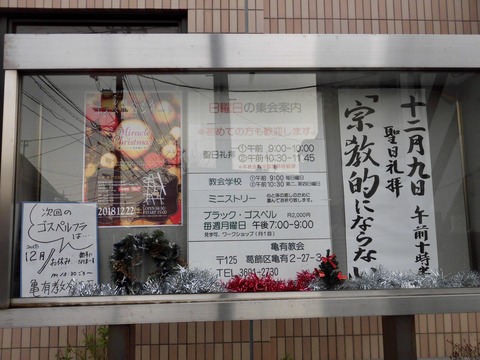 Miracle
Christmas
2018.12.22
日曜日の集会案内
*初めての方も歓迎します。
聖日礼拝
①午前 9:00-10:00
②午前 10:30-11:45
教会学校
①午前 9:00 毎日曜日
②午前 10:30 第二、第四日曜日
ミニストリー
心と体の癒しのために
ブラック・ゴスペル 月2,000円
毎週月曜日 午後7:00-9:00
見学可。ワークショップ（月1回）
亀有教会
〒125 葛飾区亀有2-27-3
TEL 3691-2730
十二月九日 午前十時半
聖日礼拝
「宗教的にならない
次回の
ゴスペルフラ
は…
12月
お休み
亀有教会